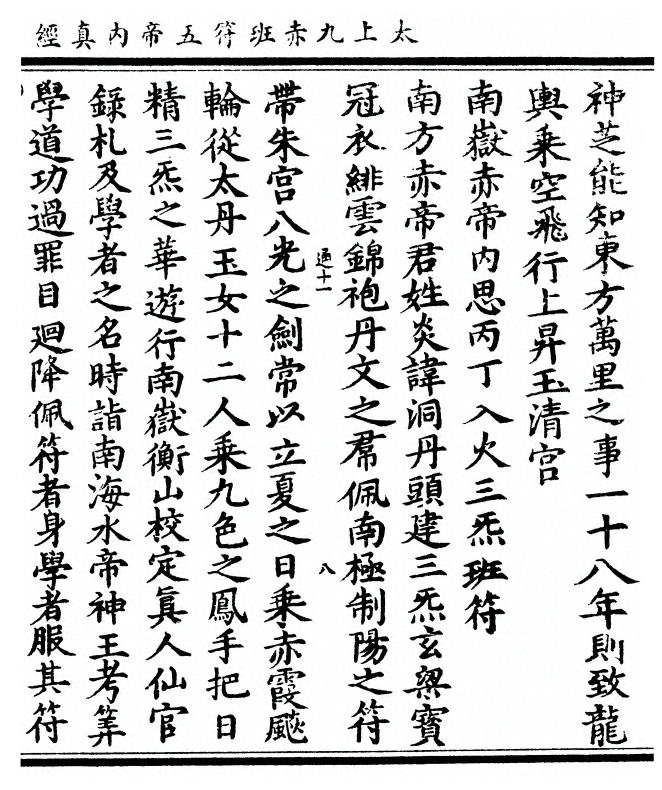 太上九赤班符五帝内真經
神芝能知東方萬里之事一十八年則致龍
輿乗空飛行上昇玉清宫
南嶽赤帝内思丙丁入火三炁班符
南方赤帝君姓炎諱洞丹頭建三炁玄梁寳
冠衣緋雲錦袍丹文之帬佩南極制陽之符
帶朱宫八光之劍常以立夏之日乗赤霞飈
通十一
八
輪從太丹玉女十二人乗九色之鳳手把日
精三炁之華遊行南嶽衡山校定真人仙官
錄札及學者之名時詣南海水帝神王考筭
學道功過罪目廻降佩符者身學者服其符